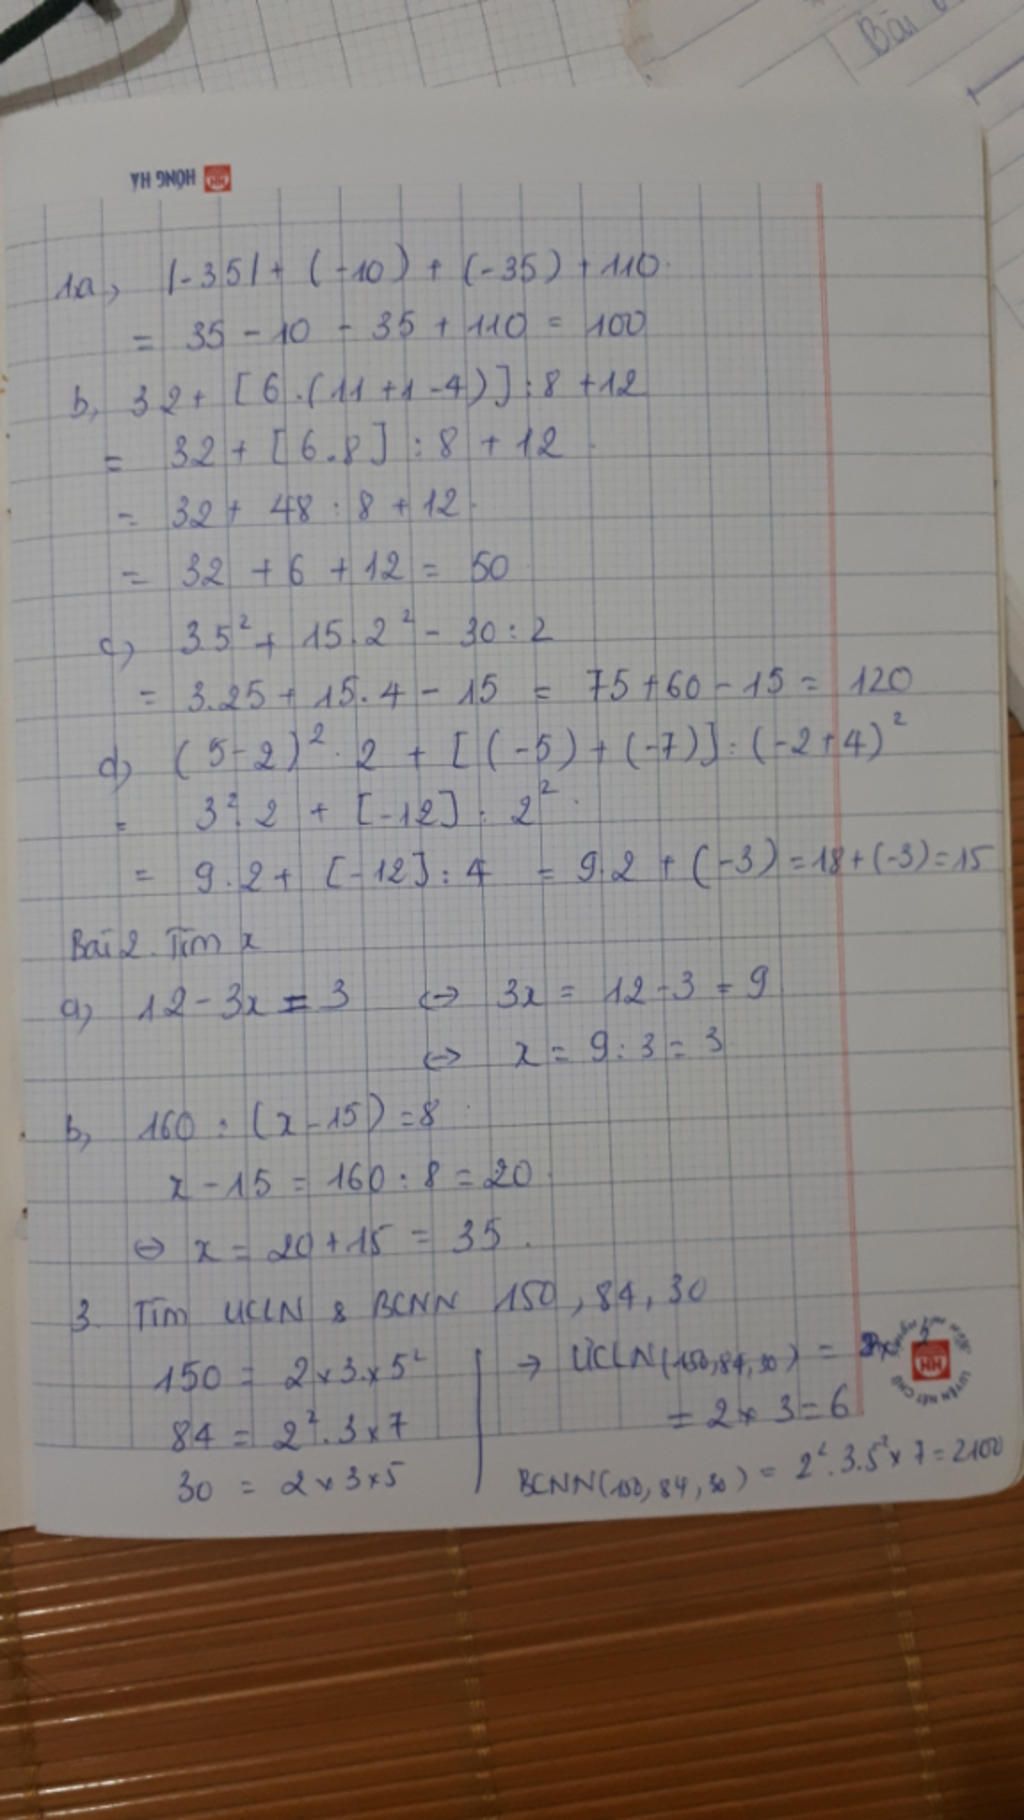 Bài
HỒNG HÀ
1a, |-35| + (-10) + (-35) + 110
= 35 - 10 - 35 + 110 = 100
b, 32 + [6.(11+1-4)]:8 +12
= 32 + [6.8] : 8 + 12
= 32 + 48 : 8 + 12
= 32 + 6 + 12 = 50
c) 3.5² + 15.2² - 30 : 2
= 3.25 + 15.4 - 15 = 75 + 60 - 15 = 120
d) (5-2)². 2 + [(-5) + (-7)] : (-2+4)²
= 3². 2 + [-12] : 2²
= 9.2 + [-12] : 4 = 9.2 + (-3) = 18 + (-3) = 15
Bài 2. Tìm x
a) 12 - 3x = 3 <-> 3x = 12 - 3 = 9
<-> x = 9 : 3 = 3
b, 160 : (x - 15) = 8
x - 15 = 160 : 8 = 20
<=> x = 20 + 15 = 35.
3. Tìm ƯCLN & BCNN 150, 84, 30
150 = 2 x 3 x 5²
84 = 2². 3 x 7
30 = 2 x 3 x 5
-> ƯCLN(150,84,30) =
= 2 x 3 = 6
BCNN(150, 84, 30) = 2². 3. 5² x 7 = 2100
HH
LUYỆN NÉT CHỮ